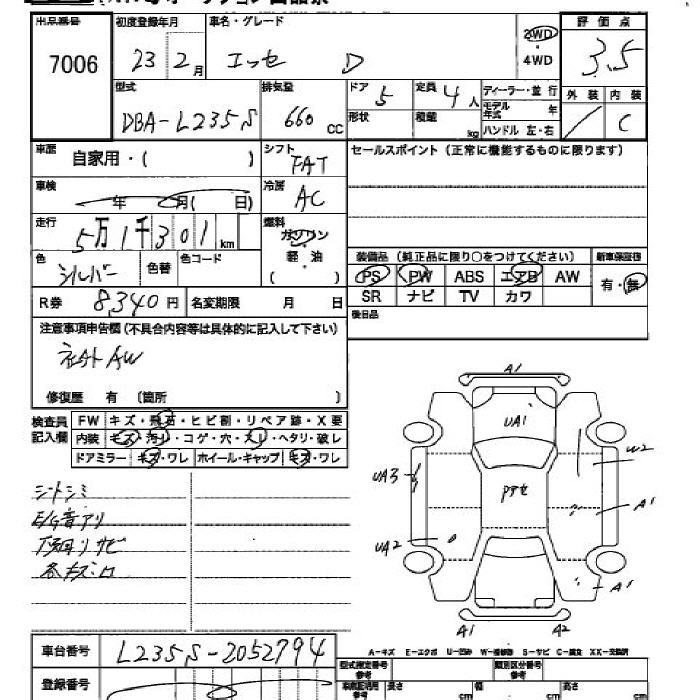 出品番号 初度登録年月 車名・グレード 評価点
7006 23 2月 エッセ D 2WD ・ 4WD 3.5
型式 排気量 ドア 5 定員 4人 ディーラー・並行 外装 内装
DBA-L235S 660 CC 形状 積載 kg モデル年式 年 ハンドル 左・右 / C
車歴 自家用・( ) シフト FAT セールスポイント(正常に機能するものに限ります)
車検 年 月( 日) 冷房 AC
走行 5万1千301km 燃料 ガソリン・軽・油 ( )
装備品(純正品に限り○をつけてください) 新車保証書
色 シルバー 色替 色コード PS PW ABS エアB AW 有・無
R券 8,340円 名変期限 月 日 SR ナビ TV カワ
後日品
注意事項申告欄(不具合内容等は具体的に記入して下さい)
社外AW
修復歴 有 〔箇所 〕
検査員記入欄 FW キズ・飛石・ヒビ割・リペア跡・X要
内装 キズ・汚れ・コゲ・穴・スレ・ヘタリ・破レ
ドアミラー キズ・ワレ ホイール・キャップ キズ・ワレ
シートシミ
E/G音アリ
下廻りサビ
各キズ・凹
A1
UA1
W2
UA3
Pアセ
A1
UA2
A1
A1 A2
A-キズ E-エクボ U-凹み W-補修跡 S-サビ C-腐食 XX-交換済
車台番号 L235S-2052794
登録番号 型式指定番号 参考 類別区分番号 参考
車庫証明用 参考 長さ cm 幅 cm 高さ cm